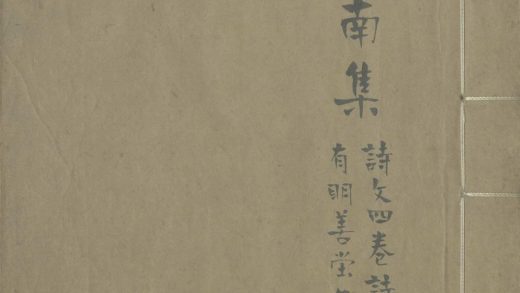 南集
詩文四卷詩
有明善堂